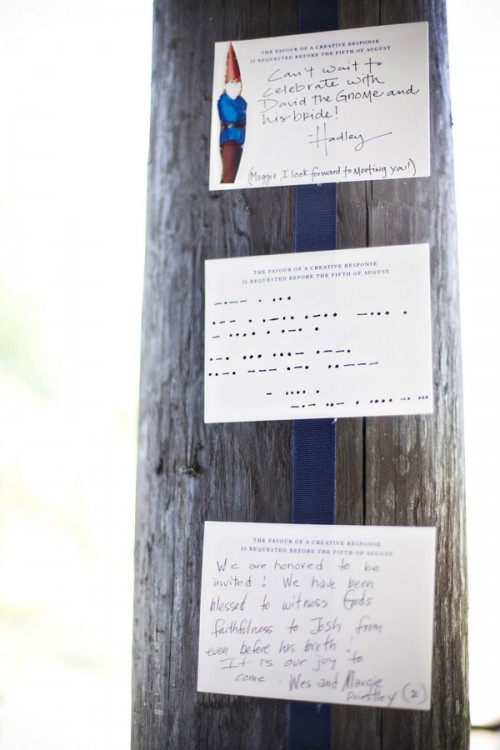 THE FAVOUR OF A CREATIVE RESPONSE
IS REQUESTED BEFORE THE FIFTH OF AUGUST
Can't wait to
celebrate with
David the Gnome and
his bride!
-Hadley
(Meggie, I look forward to meeting you!)
THE FAVOUR OF A CREATIVE RESPONSE
IS REQUESTED BEFORE THE FIFTH OF AUGUST
THE FAVOUR OF A CREATIVE RESPONSE
IS REQUESTED BEFORE THE FIFTH OF AUGUST
We are honored to be
invited! We have been
blessed to witness Gods
faithfulness to Josh from
even before his birth.
It is our joy to
come. Wes and Margie
Priestley (2)